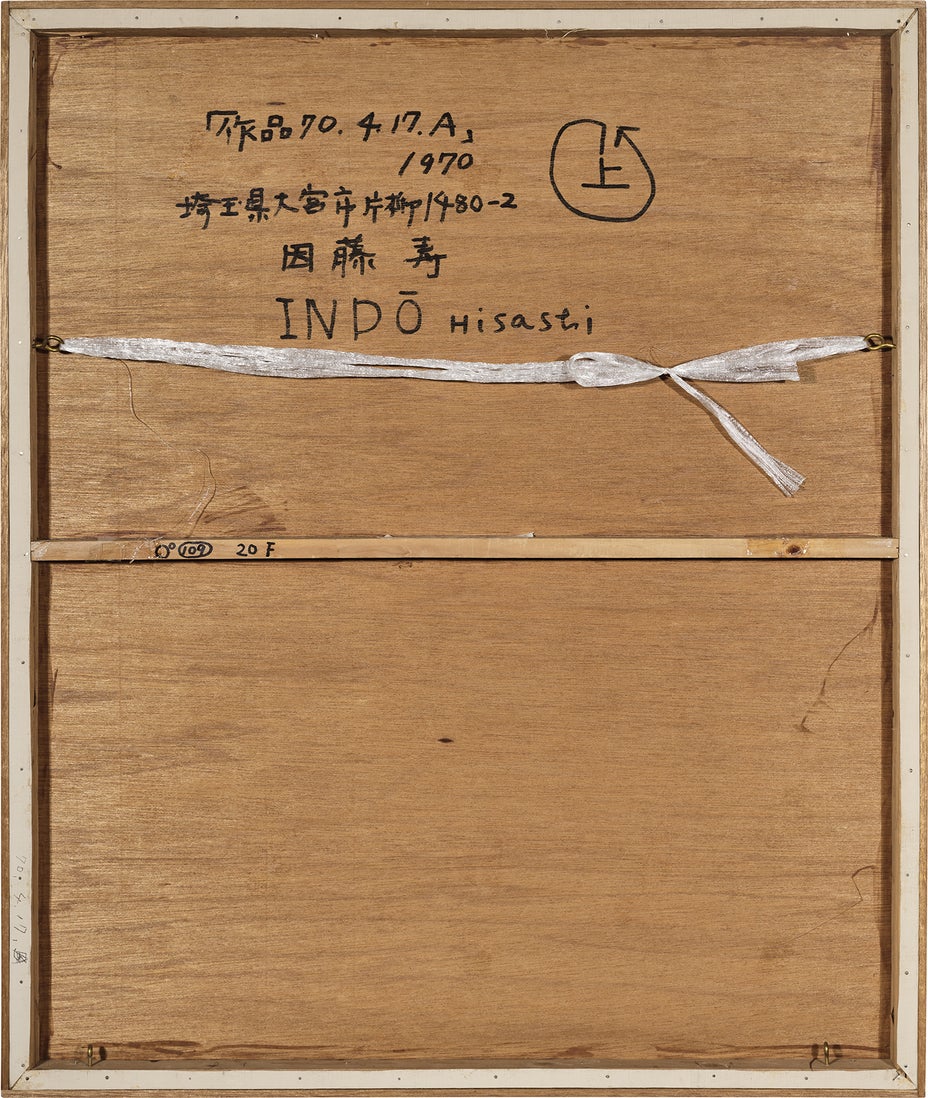 「作品70.4.17.A」
1970
上
埼玉県大宮市片柳1480-2
因藤 寿
INDŌ Hisashi
109 20F
70.4.17.